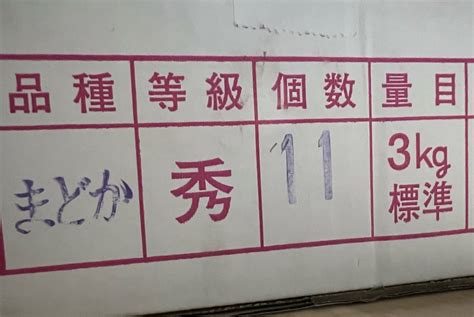 品種 等級 個数 量目
まどか 秀 11 3kg
標準